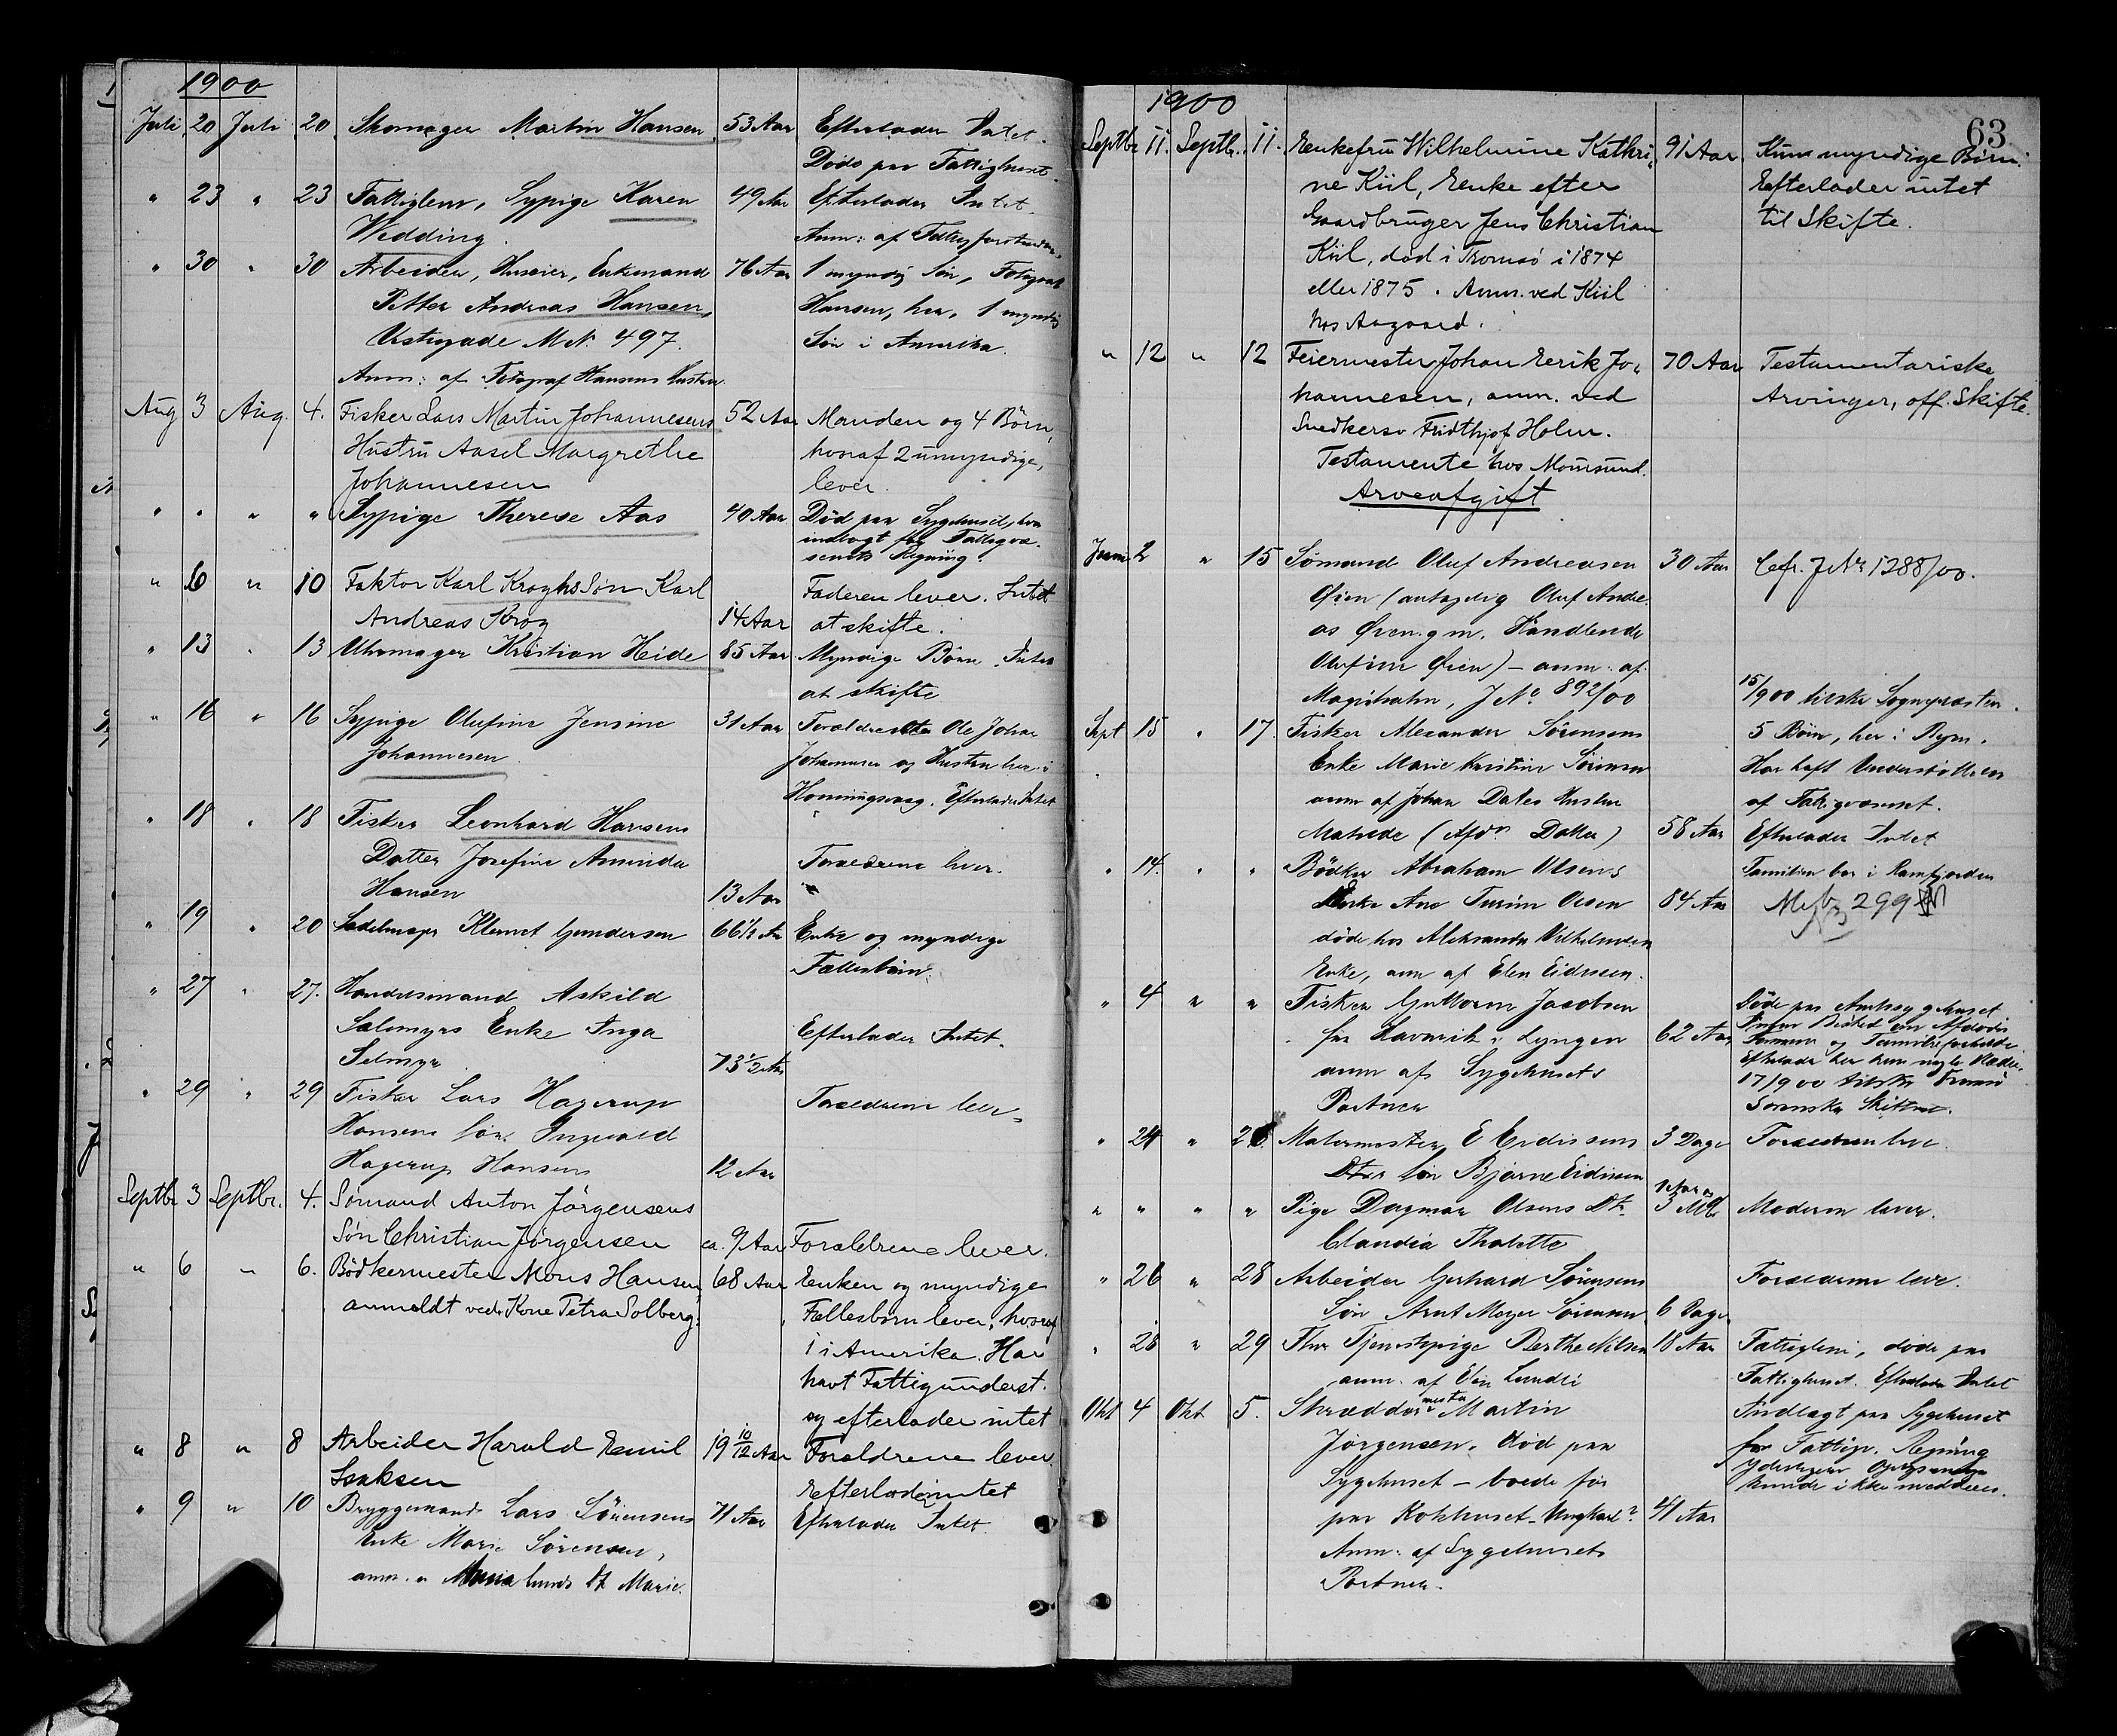 1900
Juli 20 Juli 20 Skomager Martin Hansen 53 Aar Efterlader Intet.
Døde paa Fattighuset.
" 23 " 23 Fattiglem, Sypige Karen 49 Aar Efterlader Intet.
Wedding. Anm: af
" 30 " 30 Arbeider, Huseier, Enkemand 76 Aar 1 myndig Søn, Fotograf
Petter Andreas Hansen, Hansen, her, 1 myndig
Vestregade M.N. 497. Søn i Amerika.
Anm: af Fotograf Hansens Hustru
Aug 3 Aug. 4. Fisker Lars Martin Johannesens 52 Aar Manden og 4 Børn,
Hustru Aasel Margrethe hvoraf 2 umyndige,
Johannesen lever.
" " " " Sypige Therese Aas 40 Aar Død paa Sygehuset, hvor
indlagt for Fattigvæ-
senets Regning.
" 6 " 10 Faktor Karl Kroghs Søn Karl Faderen lever. Intet
Andreas Krog 14 Aar at skifte.
" 13 " 13 Uhrmager Kristian Heide 85 Aar Myndige Børn. Intet
at skifte
" 16 " 16 Sypige Olufine Jensine 31 Aar Forældrene Ole Johan
Johannesen Johannesen og Hustru lever i
Honningsvaag. Efterlader Intet
" 18 " 18 Fisker Leonhard Hansens
Datter Josefine Aminda Forældrene lever.
Hansen 13 Aar
" 19 " 20 Sadelmager Klemet Gundersen 66½ Aar Enke og myndige
Fællesbørn.
" 27 " 27. Handelsmand Askild
Selmyrs Enke Inga Efterlader Intet.
Selmyr 73½ Aar
" 29 " 29 Fisker Lars Hagerup Forældrene lever
Hansens Søn Ingvald
Hagerup Hansen 12 Aar
Septbr 3 Septbr. 4. Sømand Anton Jörgensens
Søn Christian Jörgensen ca. 9 Aar Forældrene lever.
" 6 " 6. Bödkermester Mons Hansen 68 Aar Enken og myndige
anmeldt ved Kone Petra Solberg. Fællesbørn lever, hvoraf
1 i Amerika. Har
havt Fattigunderst.
og efterlader intet
" 8 " 8 Arbeider Harald Emil 19 10/12 Aar Forældrene lever
Isaksen Efterlader intet
" 9 " 10 Bryggemand Lars Sörensens 71 Aar Efterlader Intet.
Enke Marie Sörensen,
anm. Marie.
63
1900
Septbr 11. Septbr. 11. Enkefru Wilhelmine Kathri- 91 Aar Kun myndige Børn.
ne Kiil, Enke efter Efterlader intet
Gaardbruger Jens Christian til Skifte.
Kiil, død i Tromsø i 1874
eller 1875. Anm. ved Kiil
hos Aagaard.
" 12 " 12 Feiermester Johan Eerik Jo- 70 Aar Testamentariske
hannesen, anm. ved Arvinger, off. Skifte.
Snedkersv Fridthjof Holm.
Testamente hos Moursund.
Arveafgift
Juni 2 " 15 Sømand Oluf Andreasen 30 Aar Cfr. J.Nr 1288/00.
Øien (antagelig Oluf Andre-
as Øien. g.m. Handlende
Olufine Øien) - anm. af
Magistraten, J No 892/00 15/900 tilskr. Sognepræsten.
Sept 15 " 17. Fisker Alexander Sørensens 5 Børn, her i Byen.
Enke Marie Kristine Sørensen Har haft Understøttelse
anm af Johan Dales Hustru af Fattigvæsenet.
(Afd.s Datter) 58 Aar Efterlader Intet
" 14. " " Bödker Abraham Olsens Familien bor i Ramfjorden
Enke Ane Olsen 84 Aar 299
døde hos Aleksander Vilhelmsens
Enke, anm af Elen Eidissen.
" 4 " " Fisker Guttorm Jacobsen Døde paa Amtssygehuset
fra Havnvik i Lyngen 62 Aar Afdødes
anm af Sygehusets og Familieforholde
Portner Efterlader her kun nogle Klæder.
17/900 tilskr. Tromsø
Sorenskr. Skifteret.
" 24 " 26. Malermester E Eidissens 3 Dage Forældrene lever
Søn Bjarne Eidissen
" " " " Pige Dagmar Olsens Dtr. 1 Aar og 3 Mdr Moderen lever.
Claudia Thalette
" 26 " 28 Arbeider Gerhard Sørensens Forældrene lever.
Søn Arnt Meyer Sørensen 6 Dage
" 28 " 29 Tjenestepige Berthe Nilsen 18 Aar Fattiglem, døde paa
anm. af Elen Lundli Fattighuset. Efterlader Intet
Okt 4 Okt 5. Skræddermester Martin Indlagt paa Sygehuset
Jørgensen. død paa for Fattigv. Regning
Sygehuset - boede før Yderligere Oplysninger
paa Kokhuset. Ungkarl? 41 Aar kunde ikke meddeles.
Anm. af Sygehusets
Portner.